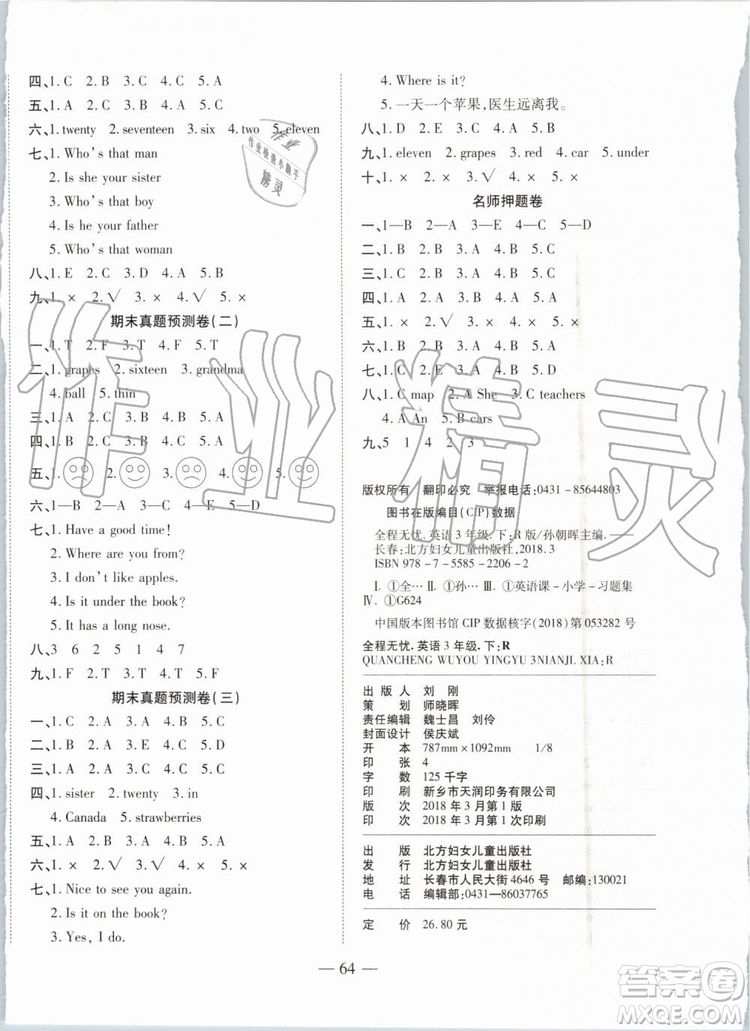 四、1. C 2. B 3. C 4. C 5. A
五、1. A 2. C 3. B 4. C 5. A
六、1. twenty 2. seventeen 3. six 4. two 5. eleven
七、1. Who's that man
2. Is she your sister
3. Who's that boy
4. Is he your father
5. Who's that woman
八、1. E 2. C 3. D 4. B 5. A
九、1. × 2. √ 3. √ 4. × 5. ×
期末真题预测卷(二)
一、1. T 2. F 3. F 4. F 5. T
二、1. grapes 2. sixteen 3. grandma
4. ball 5. thin
三、1. A 2. C 3. C 4. A 5. A
四、1. B 2. C 3. A 4. A 5. C
五、1. 2. 3. 4. 5.
六、1—B 2—C 3—D 4—E 5—A
七、1. Have a good time!
2. Where are you from?
3. I don't like apples.
4. Is it under the book?
5. It has a long nose.
八、3 6 2 5 1 4 7
九、1. F 2. T 3. T 4. T 5. F
期末真题预测卷(三)
一、1. C 2. B 3. A 4. B 5. C
二、1. C 2. A 3. A 4. B 5. C
三、1. D 2. C 3. A 4. B 5. E
四、1. sister 2. twenty 3. in
4. Canada 5. strawberries
五、1. A 2. A 3. B 4. B 5. A
六、1. × 2. √ 3. √ 4. × 5. ×
七、1. Nice to see you again.
2. Is it on the book?
3. Yes, I do.
4. Where is it?
5. 一天一个苹果,医生远离我。
八、1. C 2. D 3. E 4. A 5. B
九、1. eleven 2. grapes 3. red 4. car 5. under
十、1. × 2. √ 3. × 4. × 5. ×
名师押题卷
一、1—B 2—A 3—E 4—C 5—D
二、1. B 2. C 3. B 4. B 5. C
三、1. C 2. B 3. C 4. B 5. A
四、1. A 2. A 3. C 4. B 5. A
五、1. × 2. × 3. √ 4. √ 5. ×
六、1. B 2. B 3. A 4. B 5. C
七、1. C 2. E 3. A 4. B 5. D
八、1. C map 2. A She 3. C teachers
4. A am 5. B cars
九、5 1 4 2 3
版权所有 翻印必究 举报电话:0431-85644803
图书在版编目(CIP)数据
全程无忧.英语3年级.下:R版/孙朝晖主编.——
长春:北方妇女儿童出版社,2018.3
ISBN 978-7-5585-2206-2
Ⅰ. ①全… Ⅱ. ①孙… Ⅲ. ①英语课-小学-习题集
Ⅳ. ①G624
中国版本图书馆 CIP 数据核字(2018)第 053282 号
全程无忧.英语3年级.下:R
QUANCHENG WUYOU YINGYU 3NIANJI. XIA:R
出版人 刘刚
策划 师晓晖
责任编辑 魏士昌 刘伶
封面设计 侯庆斌
开本 787mm×1092mm 1/8
印张 4
字数 125千字
印刷 新乡市天润印务有限公司
版次 2018年3月第1版
印次 2018年3月第1次印刷
出版 北方妇女儿童出版社
发行 北方妇女儿童出版社
地址 长春市人民大街4646号 邮编:130021
电话 编辑部:0431-86037765
定价 26.80元
— 64 —
作业精灵
答案圈
MXQE.COM